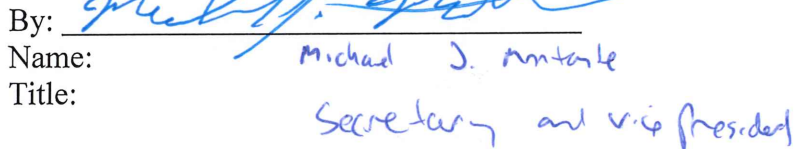 By:
Name: Michael J.
Title:
Secretary and vice President